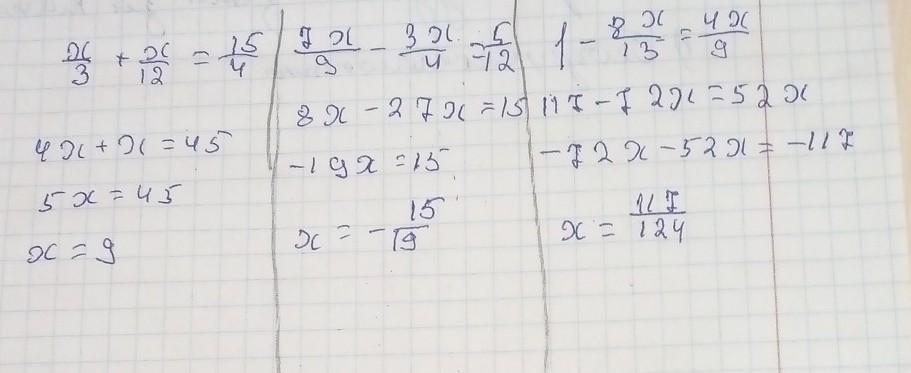 x/3 + x/12 = 15/4
4x + x = 45
5x = 45
x = 9
7x/9 - 3x/4 = 5/12
8x - 27x = 15
-19x = 15
x = -15/19
1 - 8x/13 = 4x/9
117 - 72x = 52x
-72x - 52x = -117
x = 117/124